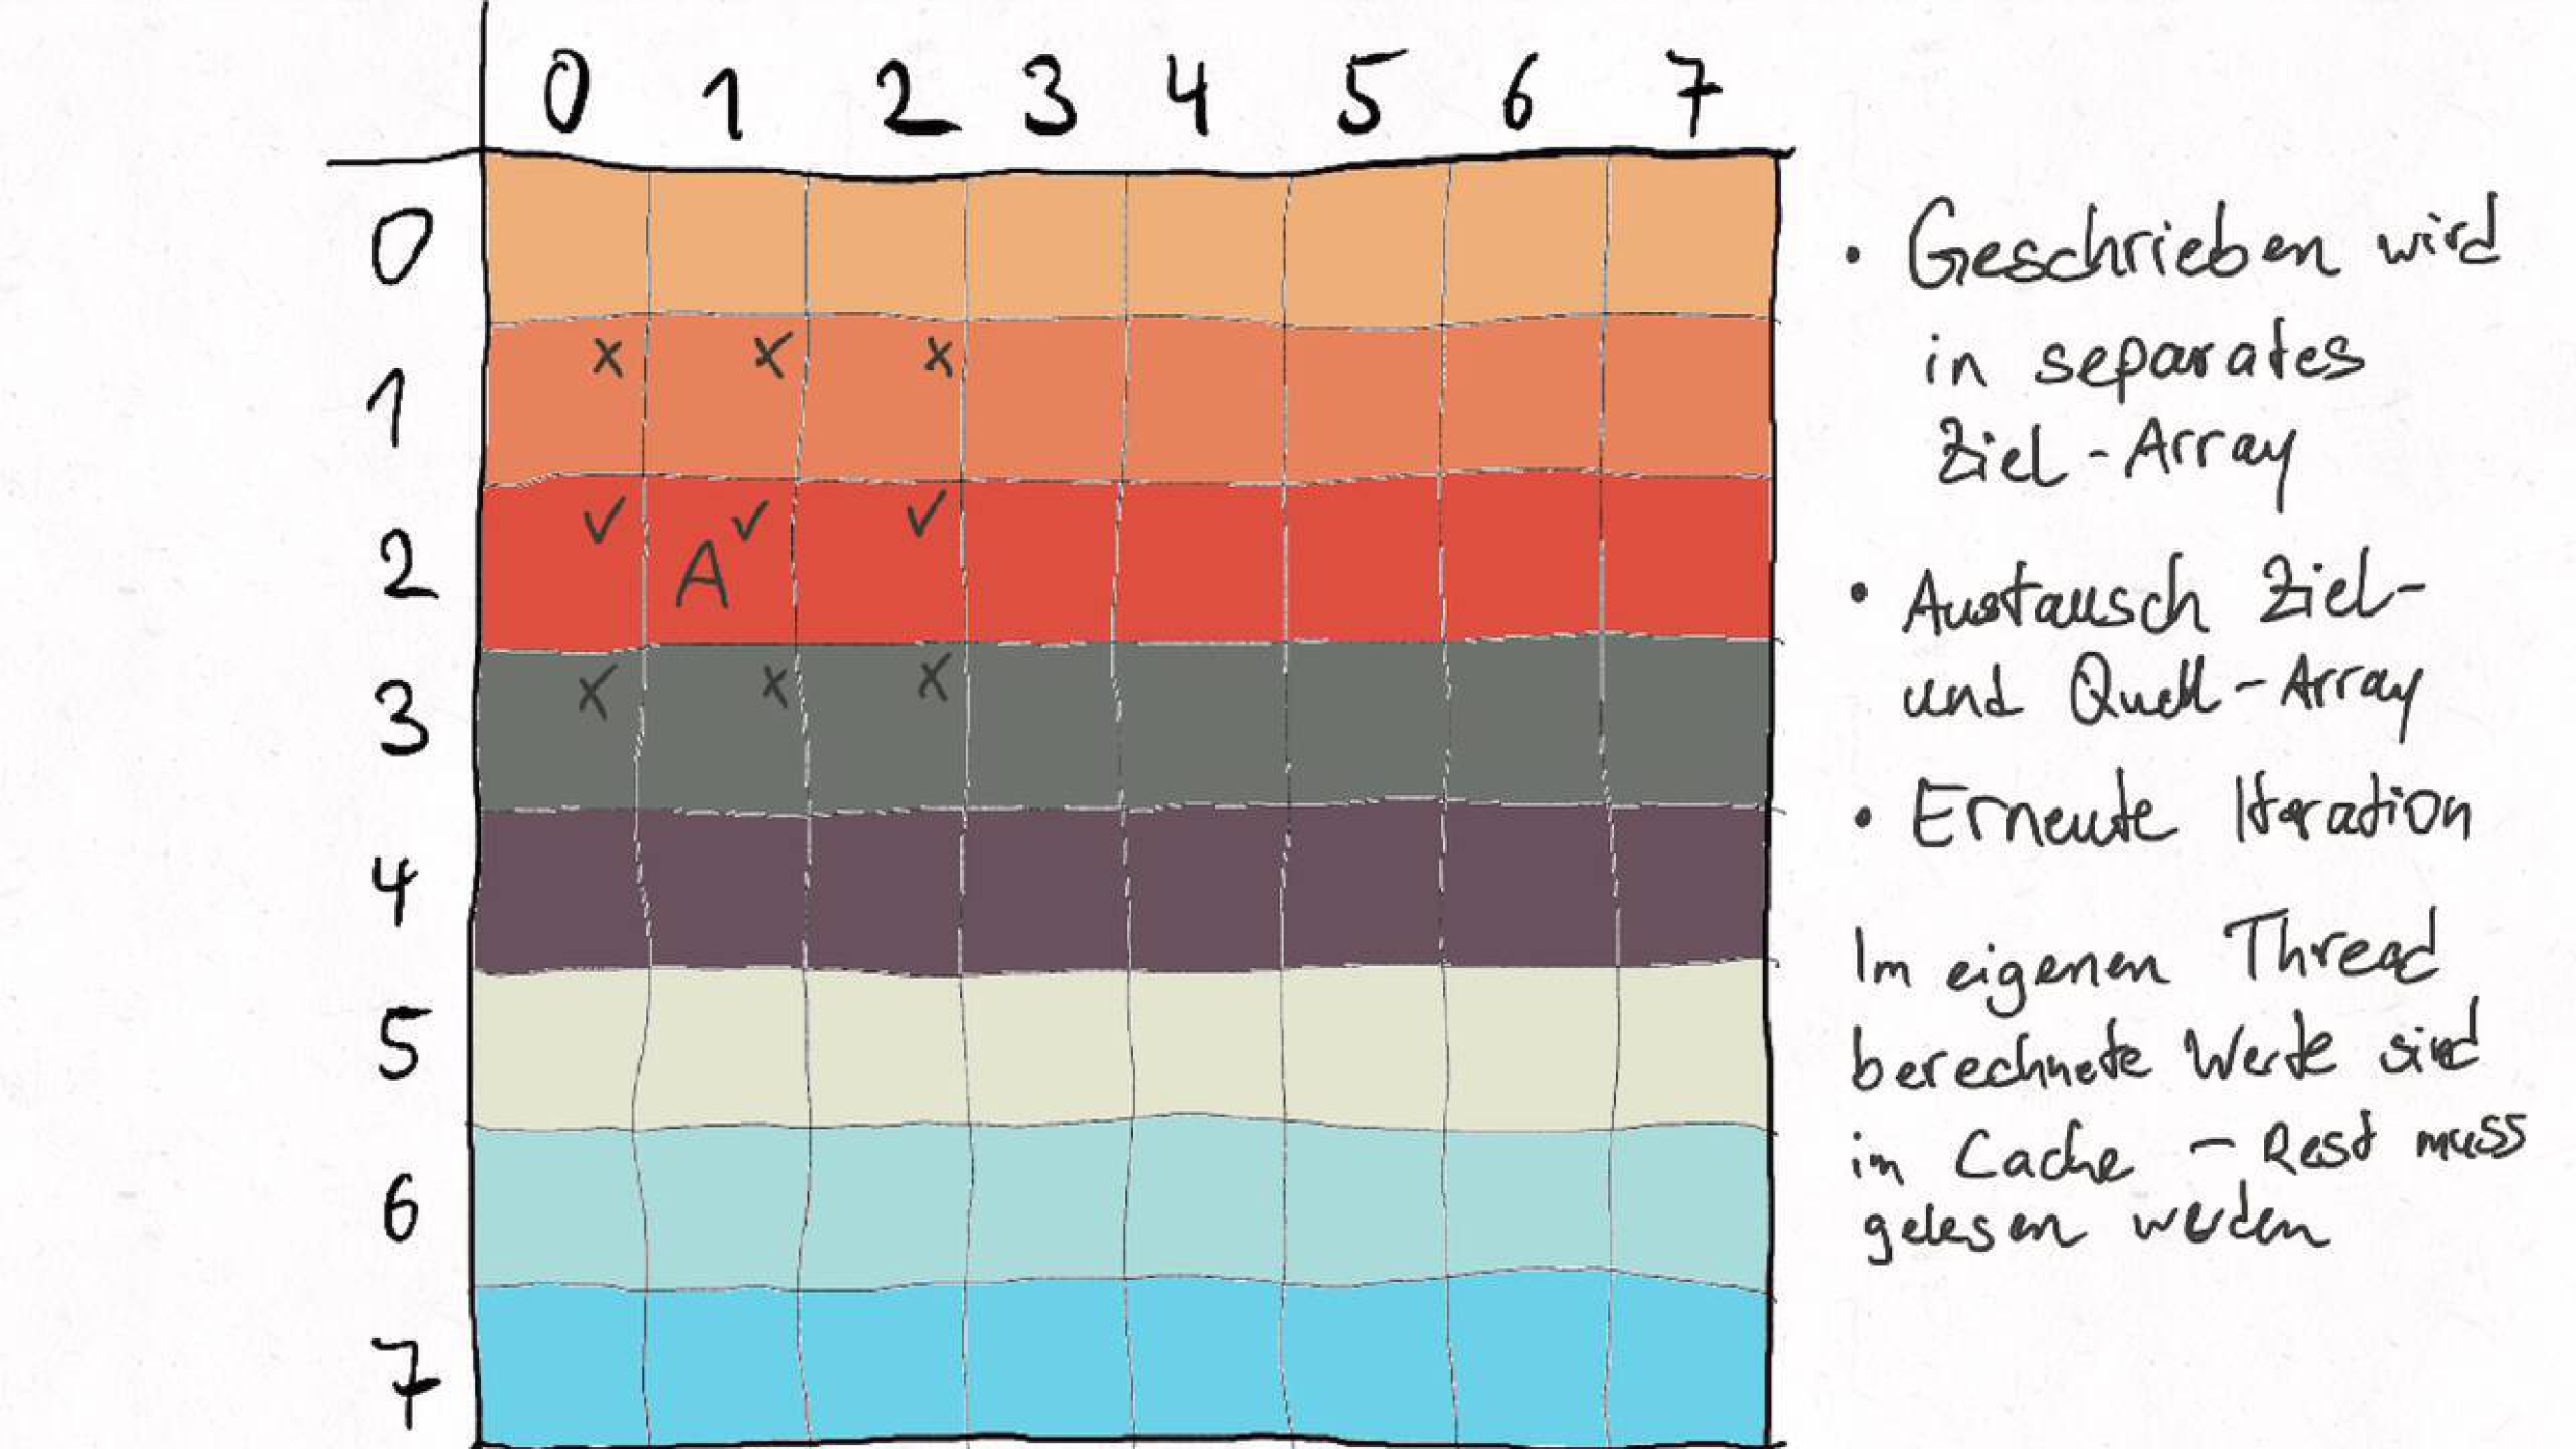 0 1 2 3 4 5 6 7
0
1 x x x
2 ✓ A ✓ ✓
3 x x x
4
5
6
7
• Geschrieben wird
in separates
Ziel-Array
• Austausch Ziel-
und Quell-Array
• Erneute Iteration
Im eigenen Thread
berechnete Werte sind
im Cache - Rest muss
gelesen werden